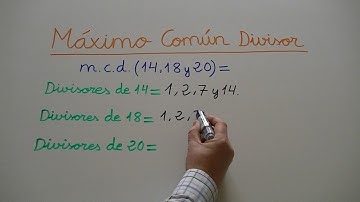 Máximo Común Divisor
m.c.d. (14,18 y 20)=
Divisores de 14= 1, 2, 7 y 14.
Divisores de 18= 1, 2,
Divisores de 20=